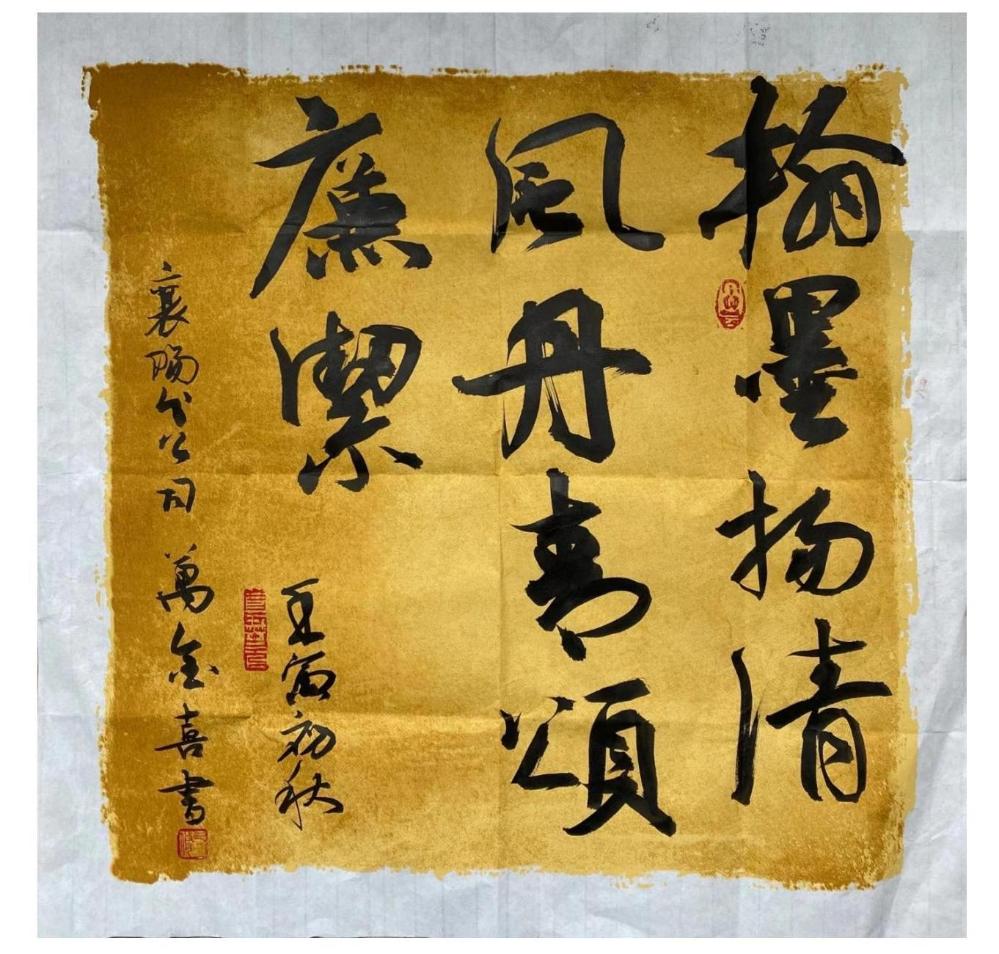 翰墨扬清
风丹青頌
廉潔
壬寅初秋
襄陽分公司 萬金喜書